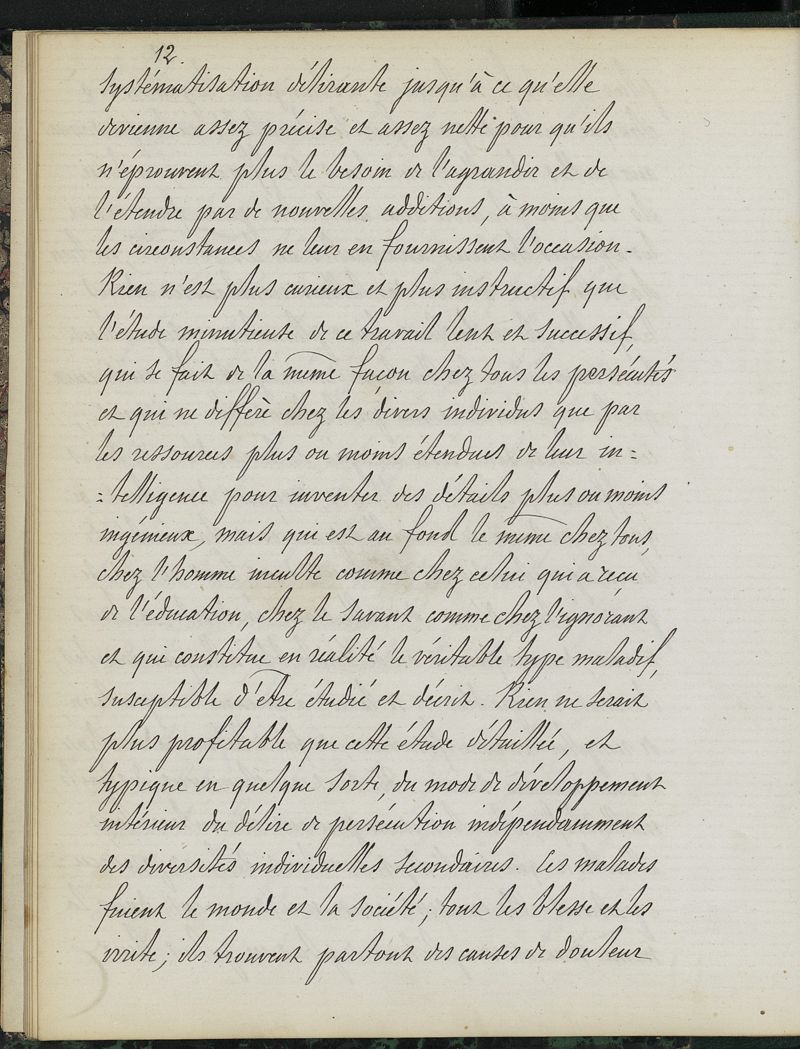 12.
systématisation délirante jusqu'à ce qu'elle
devienne assez précise et assez nette pour qu'ils
n'éprouvent plus le besoin de l'agrandir et de
l'étendre par de nouvelles additions, à moins que
les circonstances ne leur en fournissent l'occasion.
Rien n'est plus curieux et plus instructif que
l'étude minutieuse de ce travail lent et successif,
qui se fait de la même façon chez tous les persécutés
et qui ne diffère chez les divers individus que par
les ressources plus ou moins étendues de leur in=
=telligence pour inventer des détails plus ou moins
ingénieux, mais qui est au fond le même chez tous,
chez l'homme inculte comme chez celui qui a reçu
de l'éducation, chez le savant comme chez l'ignorant
et qui constitue en réalité le véritable type maladif,
susceptible d'être étudié et décrit. Rien ne serait
plus profitable que cette étude détaillée, et
typique en quelque sorte, du mode de développement
intérieur du délire de persécution indépendamment
des diversités individuelles secondaires. Ces malades
fuient le monde et la société; tout les blesse et les
irrite; ils trouvent partout des causes de douleur